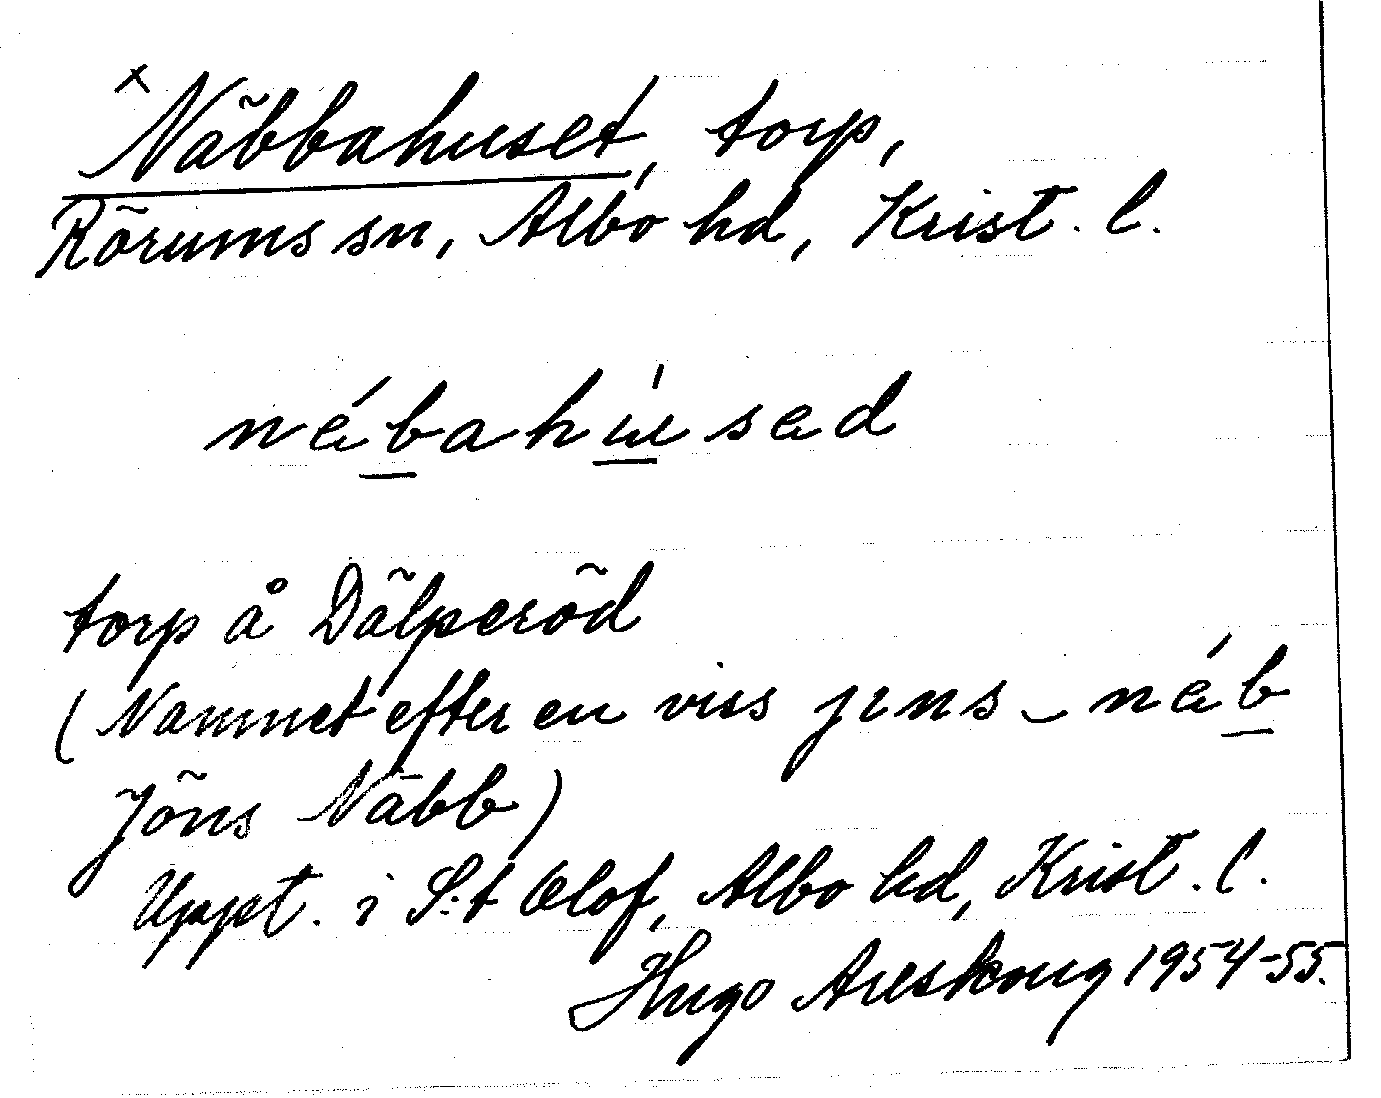 × Näbbahuset, torp,
Rörums sn, Albo hd, Krist. l.
nǽbahúsæd
torp å Dälperöd
(Namnet efter en viss jens-nǽb
Jöns Näbb)
Uppt. i S:t Olof, Albo hd, Krist. l.
Hugo Areskoug 1954-55.